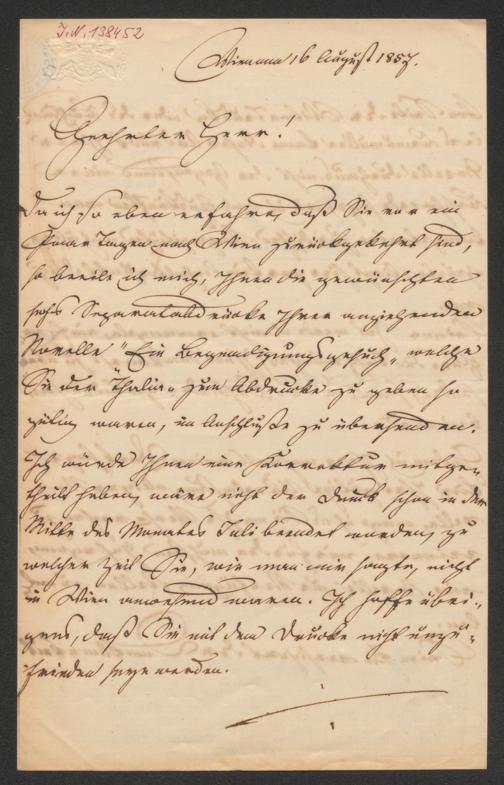 J.N. 138452
Wien am 16 August 1857.
Geehrter Herr!
Da ich so eben erfahre, daß Sie vor ein
Paar Tagen nach Wien zurückgekehrt sind,
so beeile ich mich, Ihnen die gewünschten
sechs Separatabdrücke Ihrer anziehenden
Novelle "Ein Begnadigungsgesuch", welche
Sie der "Thalia" zum Abdrucke zu geben so
gütig waren, im Anschluße zu übersenden.
Ich würde Ihnen eine Korrektur mitge-
theilt haben, wäre nicht der Druck schon in der
Mitte des Monates Juli beendet worden, zu
welcher Zeit Sie, wie man mir sagte, nicht
in Wien anwesend waren. Ich hoffe übri-
gens, daß Sie mit dem Drucke nicht unzu-
frieden seyn werden.